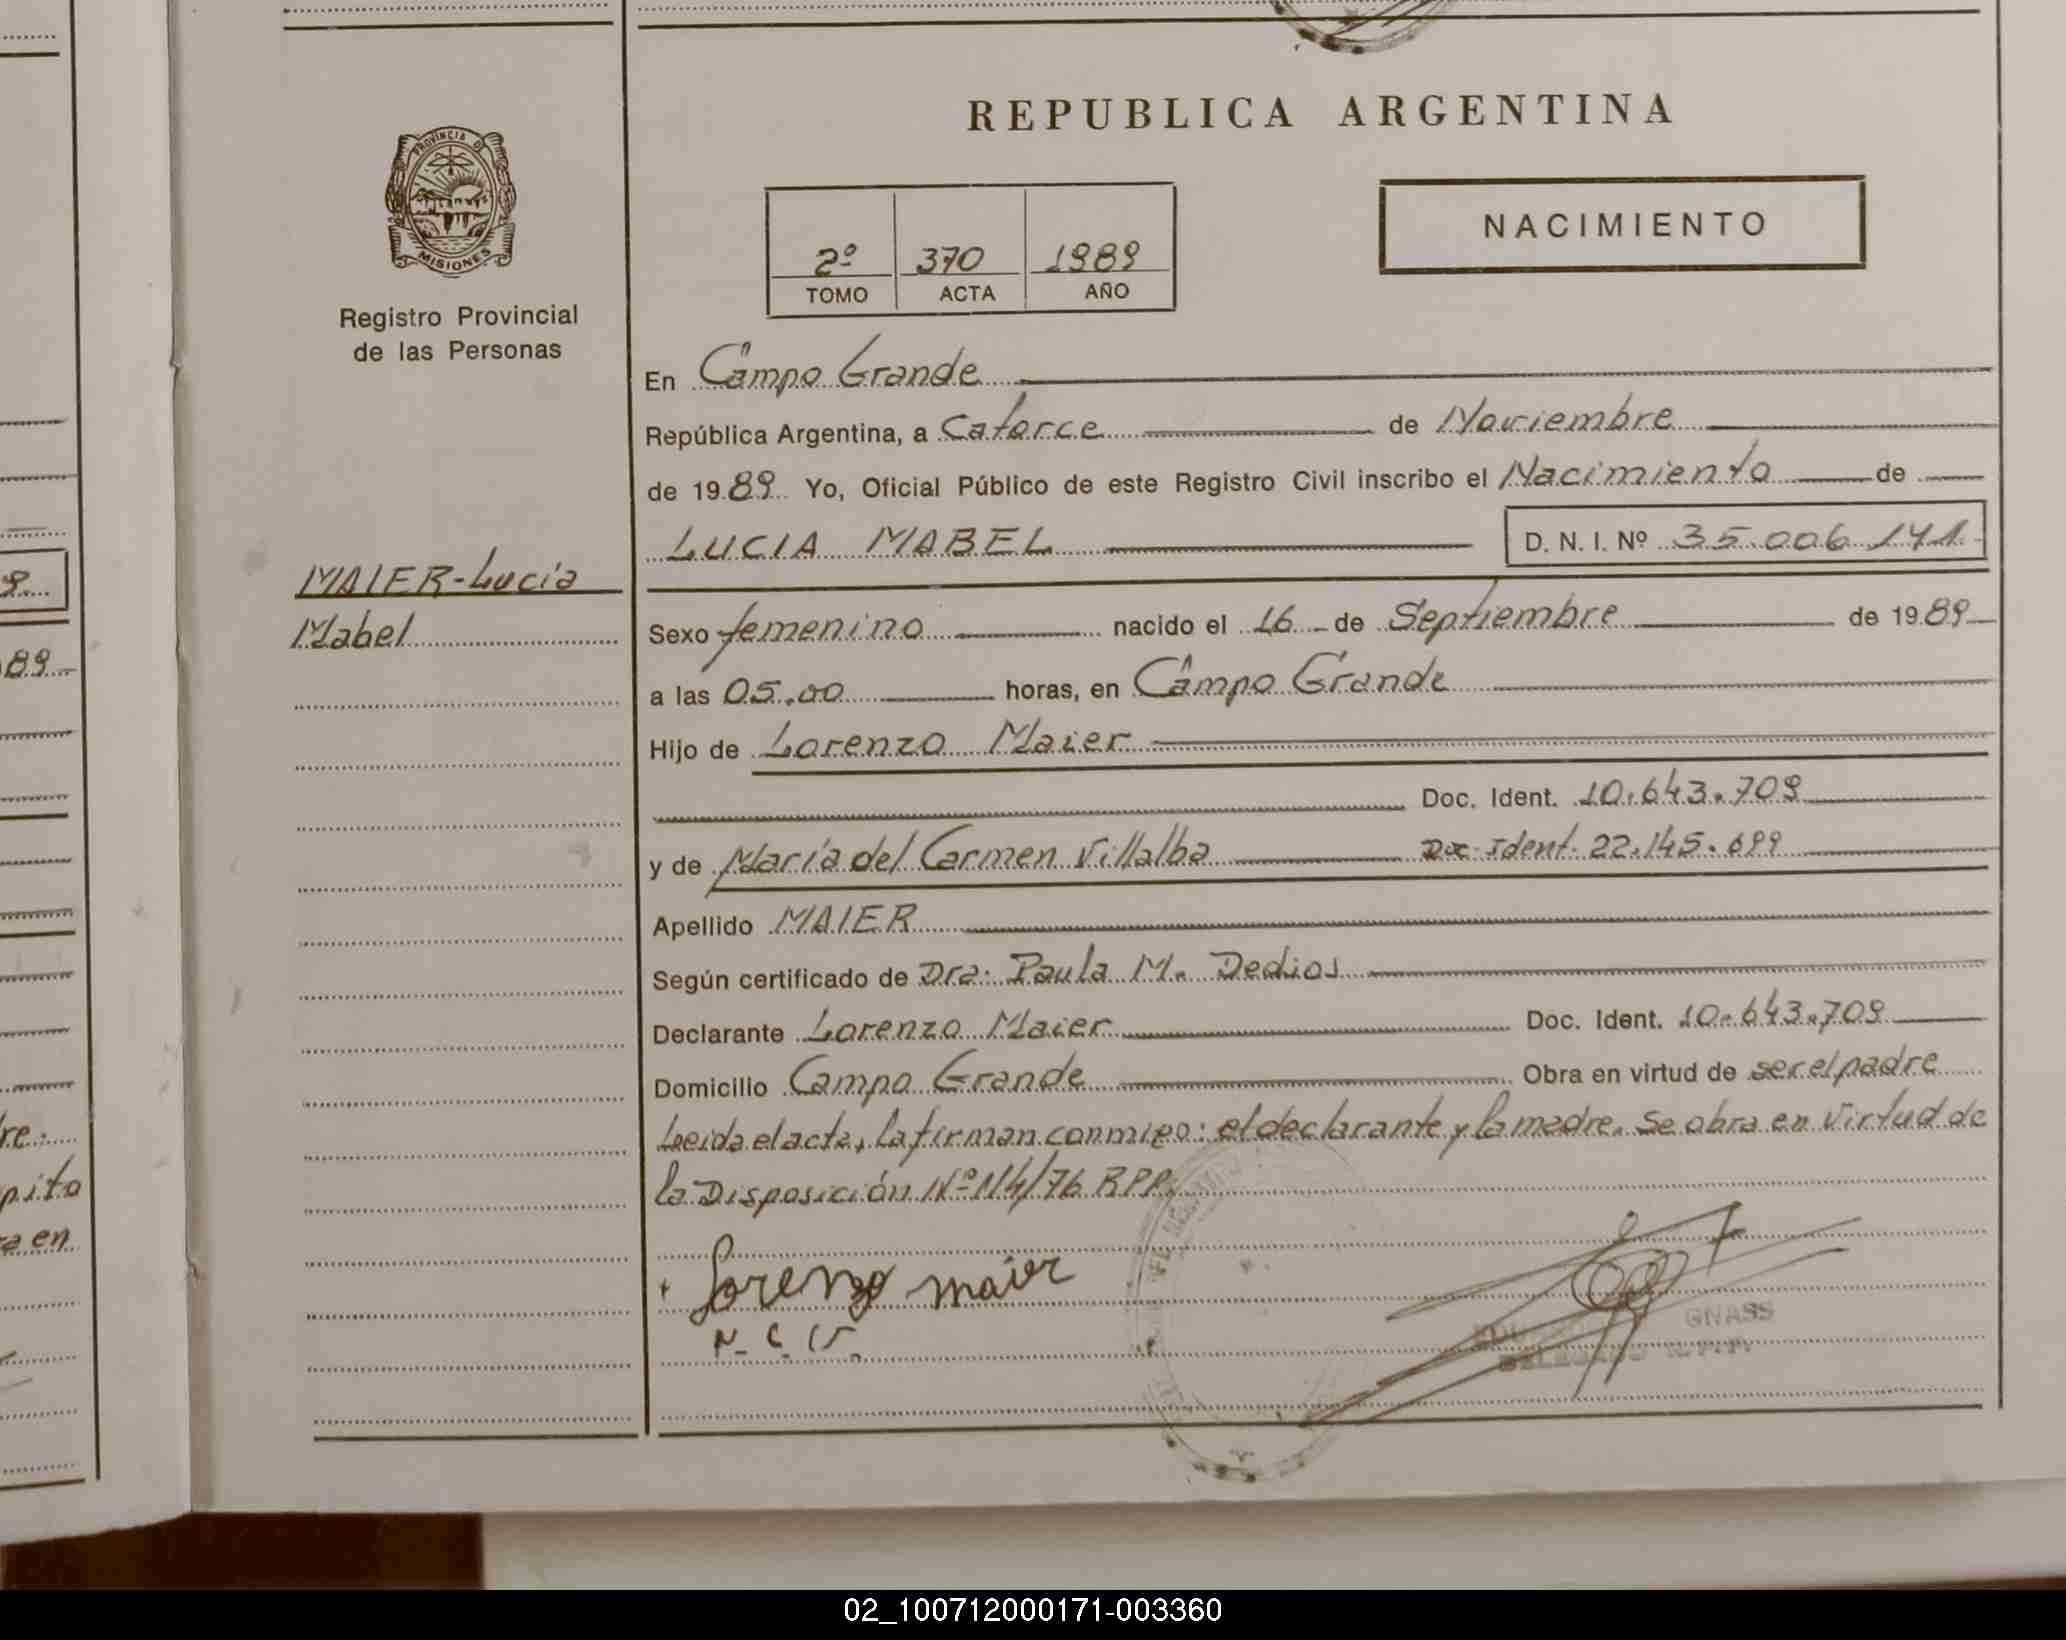 REPUBLICA ARGENTINA
PROVINCIA DE
MISIONES
Registro Provincial
de las Personas
2º 370 1989
TOMO ACTA AÑO
NACIMIENTO
En Campo Grande
República Argentina, a Catorce de Noviembre
de 1989 Yo, Oficial Público de este Registro Civil inscribo el Nacimiento de
LUCIA MABEL D. N. I. Nº 35.006.141
MAIER-Lucía
Mabel
Sexo femenino nacido el 16 de Septiembre de 1989
a las 05.00 horas, en Campo Grande
Hijo de Lorenzo Maier
Doc. Ident. 10.643.709
y de María del Carmen Villalba Doc Ident. 22.145.699
Apellido MAIER
Según certificado de Dra. Paula M. Dedios
Declarante Lorenzo Maier Doc. Ident. 10.643.709
Domicilio Campo Grande Obra en virtud de ser el padre
Leída el acta, la firman conmigo: el declarante y la madre. Se obra en Virtud de
la Disposición Nº 114/76 RPP.
Lorenzo maier
GNASS
89
re.
pito
a en
02_100712000171-003360